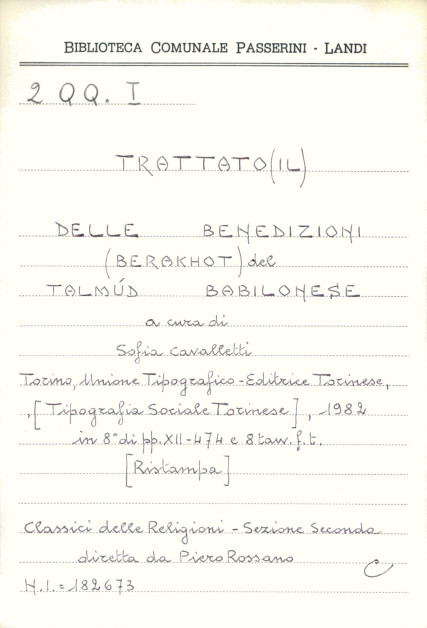 BIBLIOTECA COMUNALE PASSERINI - LANDI
2 QQ. I
TRATTATO (IL)
DELLE BENEDIZIONI
(BERAKHOT) del
TALMÚD BABILONESE
a cura di
Sofia Cavalletti
Torino, Unione Tipografico-Editrice Torinese,
, [Tipografia Sociale Torinese], 1982
in 8° di pp. XII-474 e 8 tavv. f. t.
[Ristampa]
Classici delle Religioni - Sezione Seconda
diretta da Piero Rossano
C
N.I. = 182673